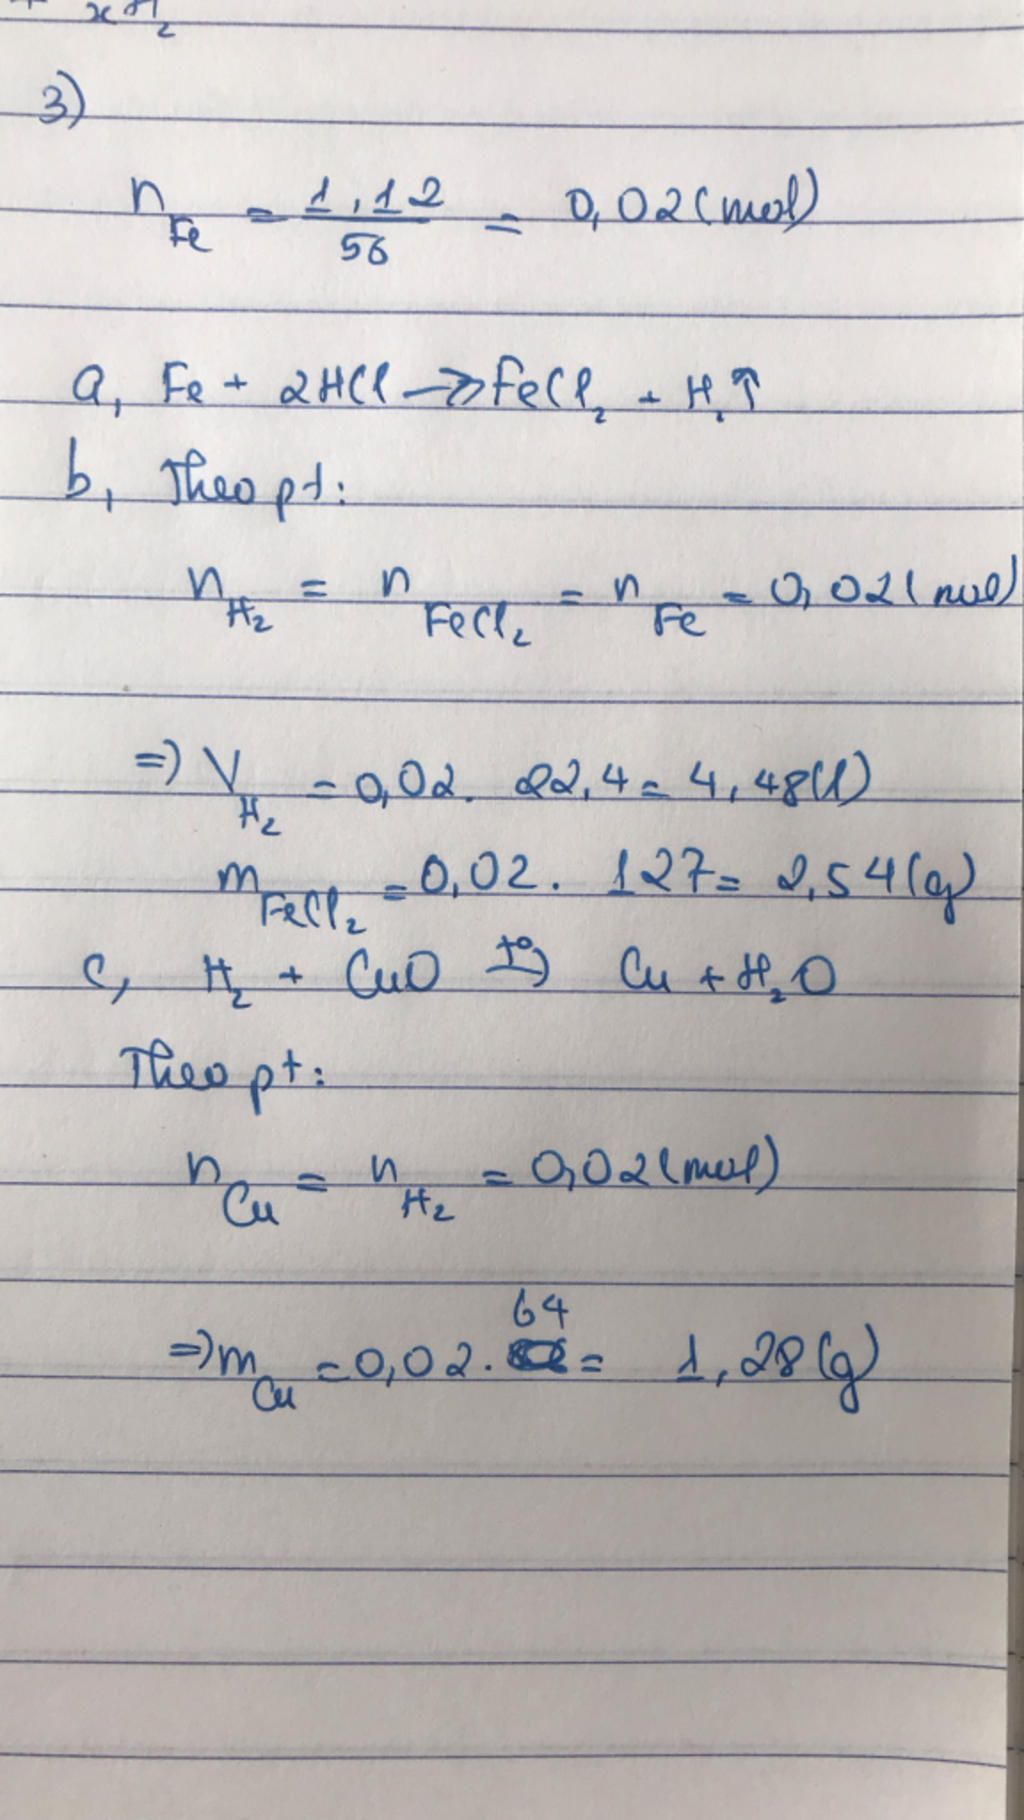 + xH₂
3)
n_Fe = 1,12/56 = 0,02(mol)
a, Fe + 2HCl → FeCl₂ + H₂↑
b, Theo pt:
n_H₂ = n_FeCl₂ = n_Fe = 0,02(mol)
=> V_H₂ = 0,02. 22,4 = 4,48(l)
m_FeCl₂ = 0,02. 127 = 2,54(g)
c, H₂ + CuO t°→ Cu + H₂O
Theo pt:
n_Cu = n_H₂ = 0,02(mol)
=> m_Cu = 0,02. 64 = 1,28(g)